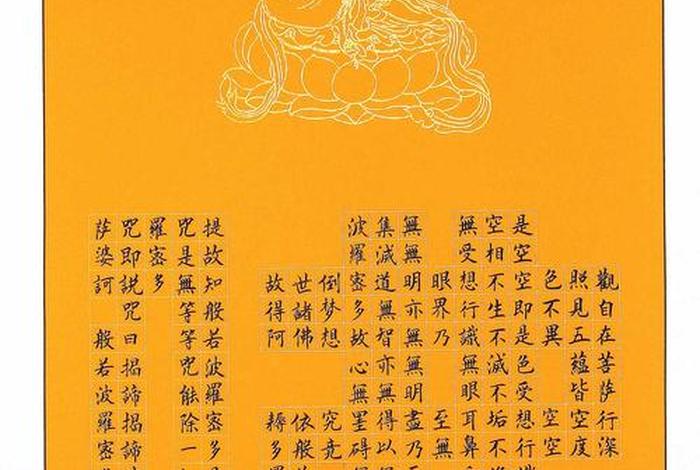 觀自在菩薩行深
照見五蘊皆空度
色不異 空空
是空空即是色受想行
空相不生不滅不垢不
無受想行識無眼耳鼻
眼界乃 至無
無無明亦無無明盡乃
集滅道無智亦無得以
波羅密多故心無罣礙
倒梦想 究竟
世諸佛 依般
故得阿 耨多
提故知般若波羅密多
咒是無等等咒能除一
羅密多
咒即説咒曰揭諦揭諦
薩婆訶 般若波羅密